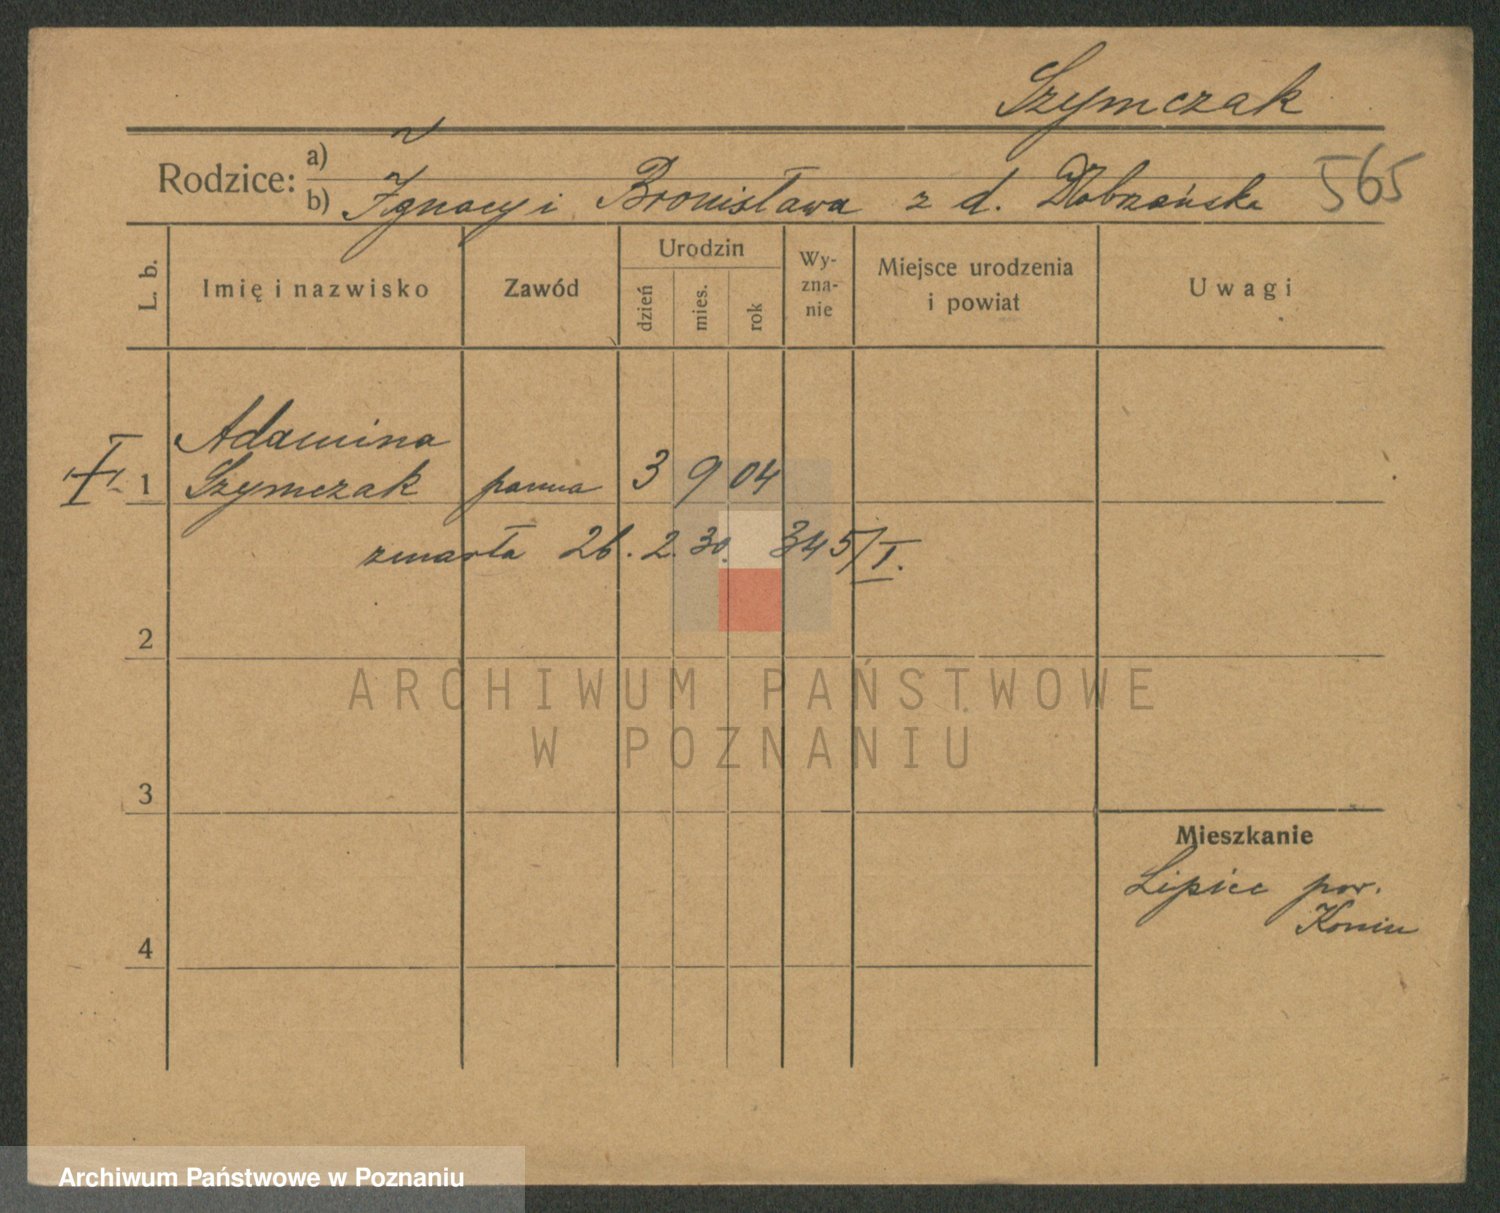 Szymczak
Rodzice:
a)
b) Ignacy i Bronisława z d. Dobrzańska
565
L. b.
Imię i nazwisko
Zawód
Urodzin
dzień
mies.
rok
Wy-
zna-
nie
Miejsce urodzenia
i powiat
Uwagi
Adamina
1 Szymczak panna 3 9 04
zmarła 26. 2. 30. 345/I.
2
3
4
Mieszkanie
Lipiec pow.
Konin
ARCHIWUM PAŃSTWOWE
W POZNANIU
Archiwum Państwowe w Poznaniu